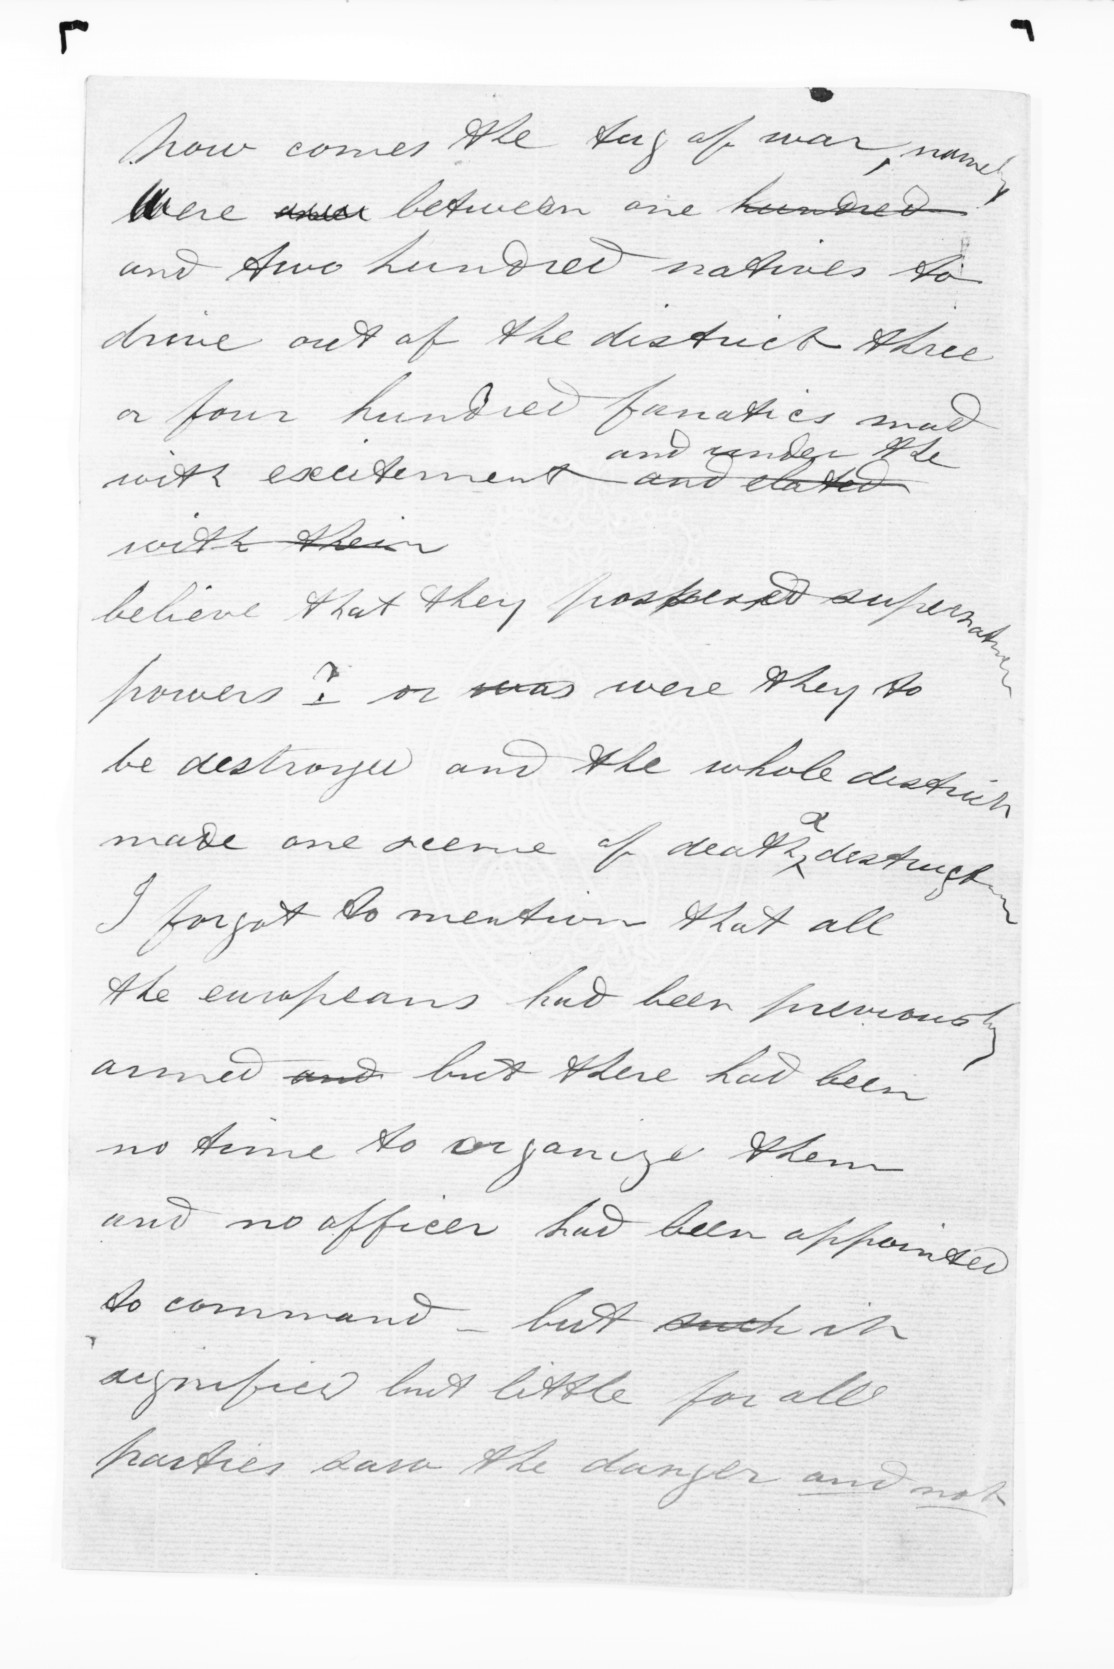 how comes the tug of war, namely
Were between one hundred
and two hundred natives to
drive out of the district three
or four hundred fanatics mad
and under the
with excitement and elated
with their
believe that they possessed supernatural
powers ? or was were they to
be destroyed and the whole district
made one scene of death & destruction
I forgot to mention that all
the europeans had been previously
armed and but there had been
no time to organize them
and no officer had been appointed
to command - but such it
signified but little for all
parties saw the danger and not